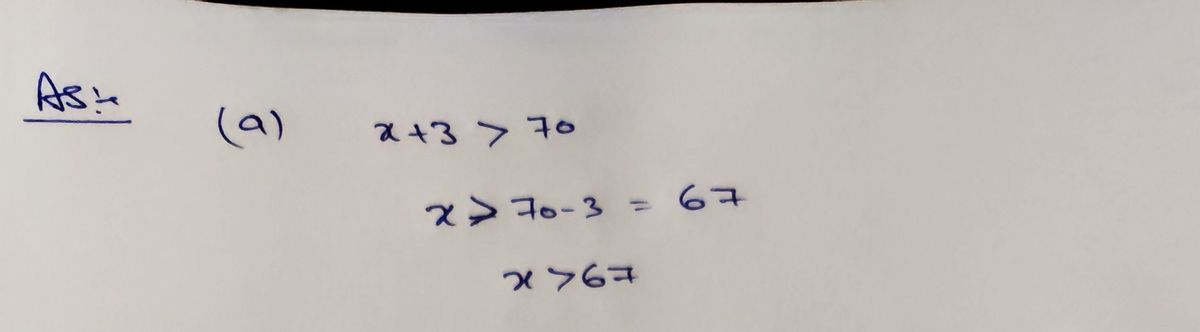 A5:-
(a) x+3 > 70
x > 70-3 = 67
x >67